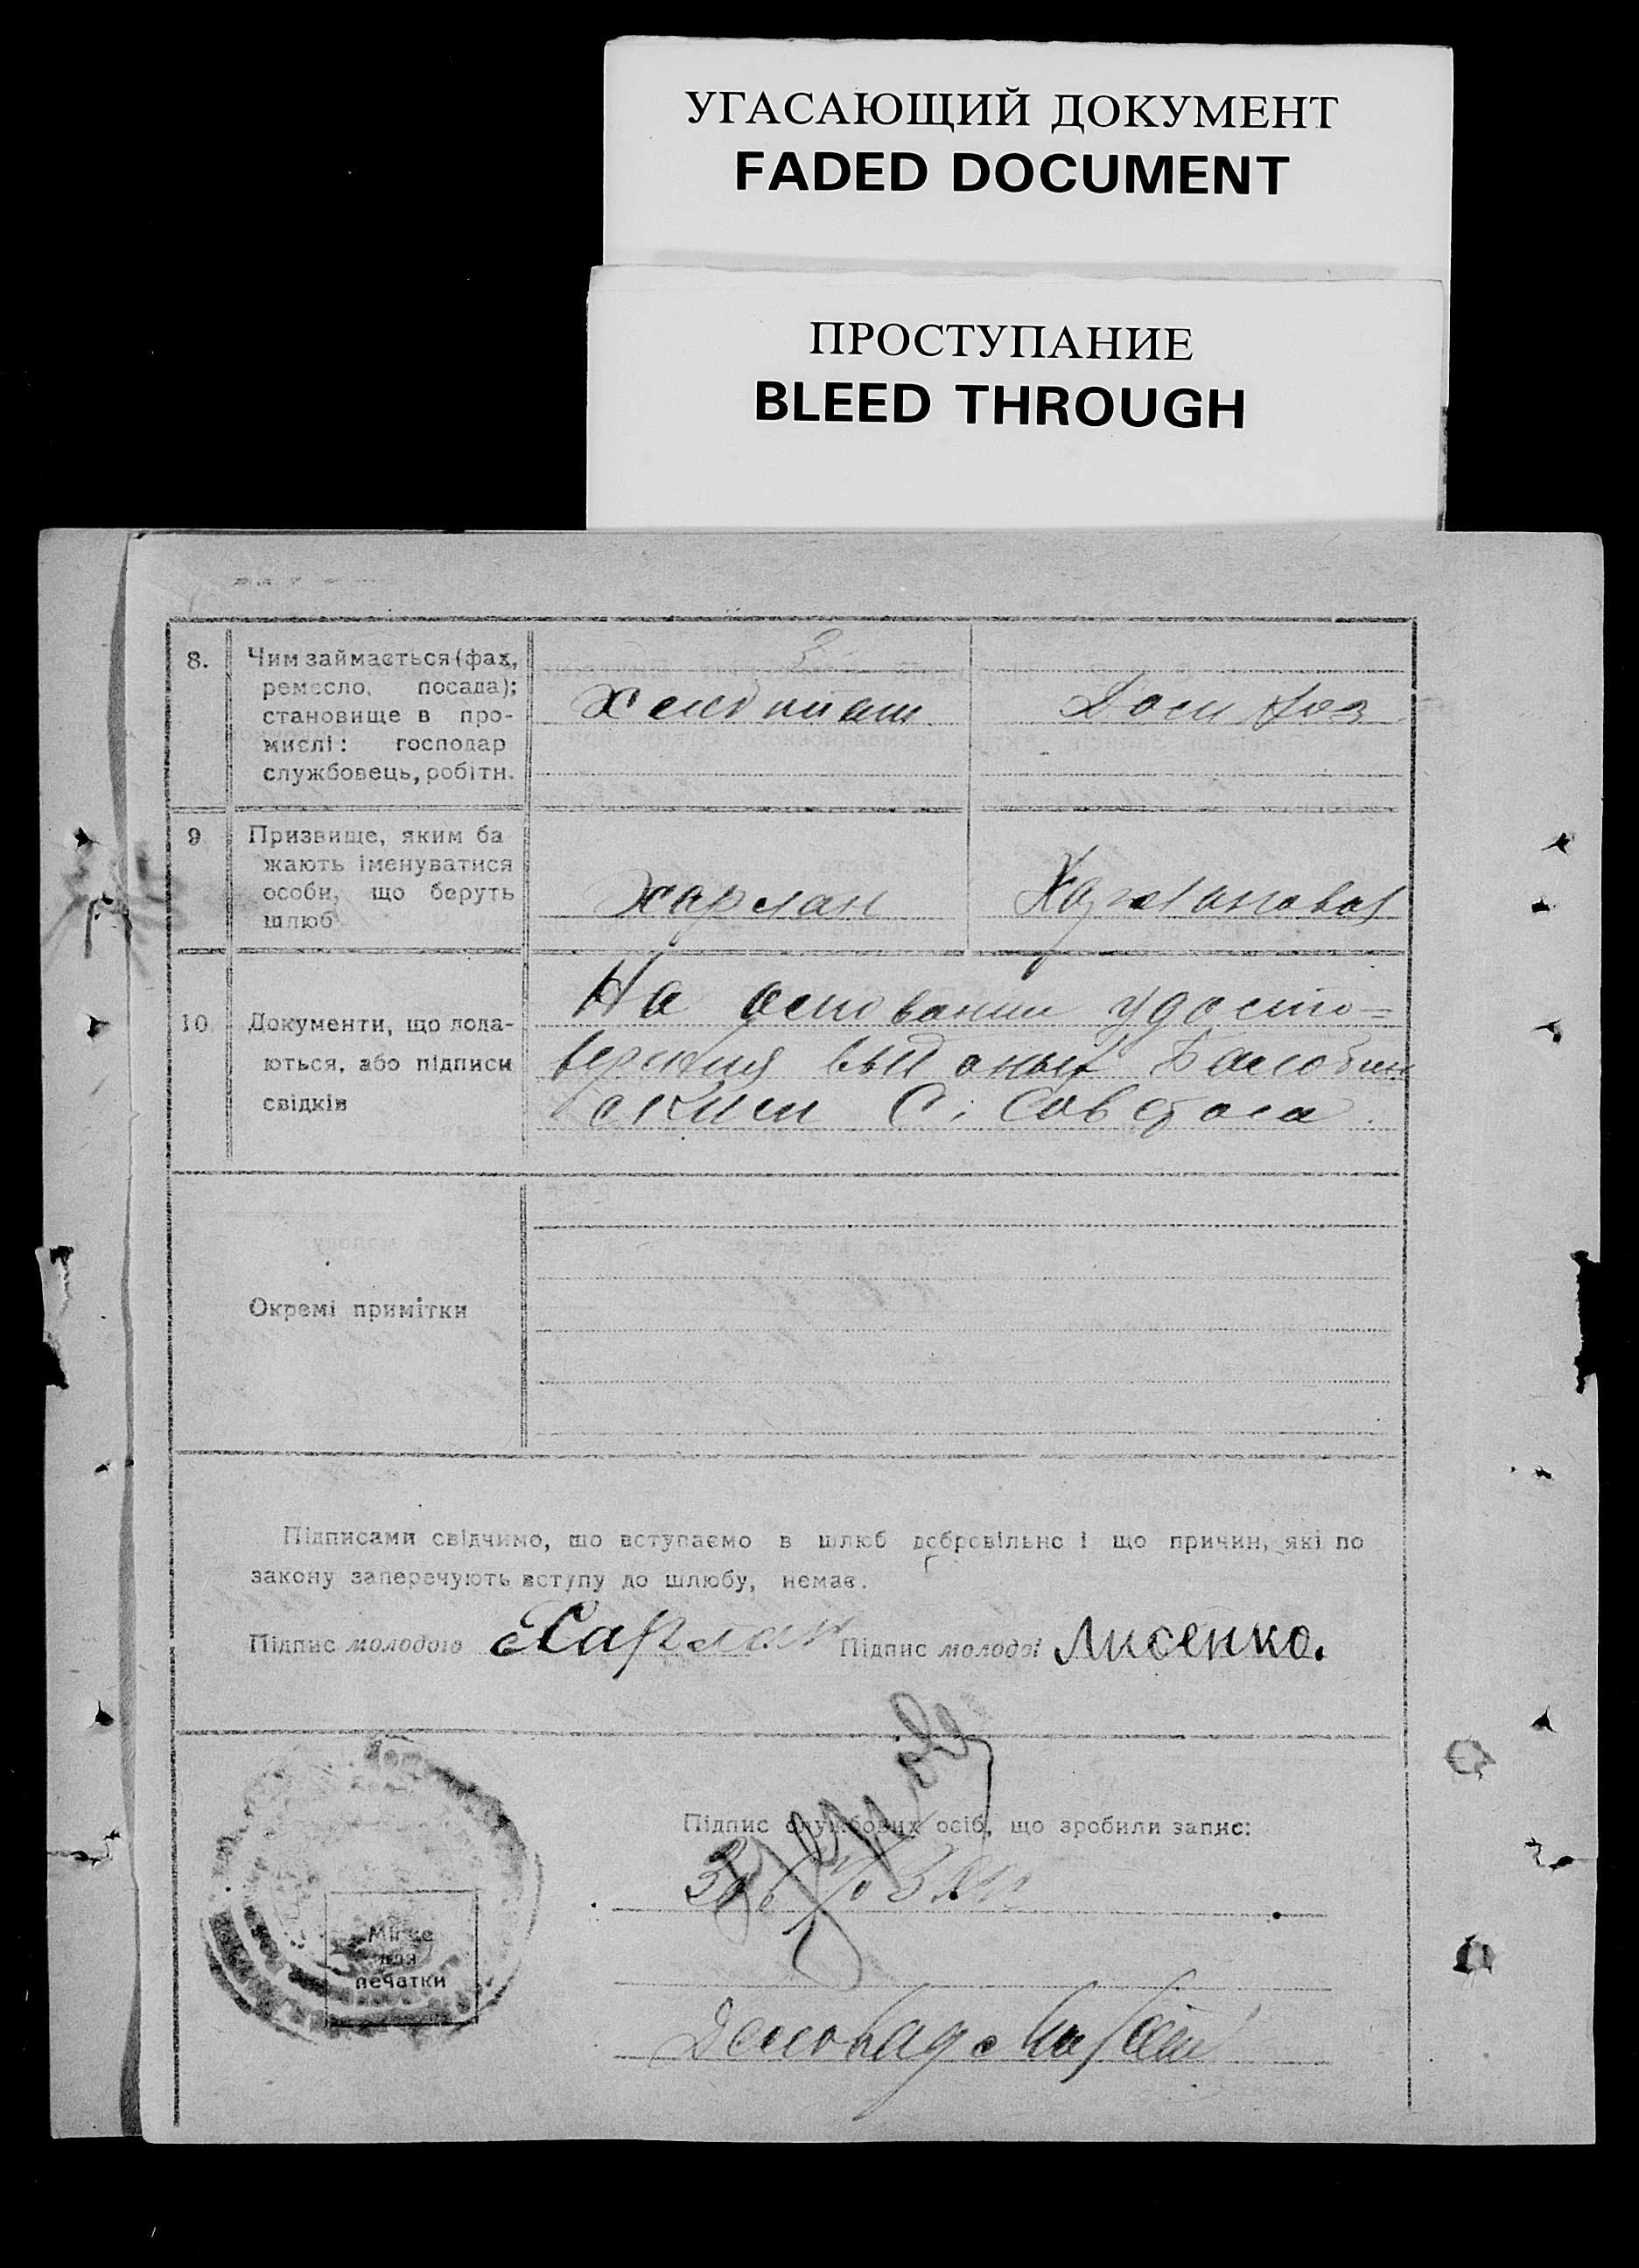 УГАСАЮЩИЙ ДОКУМЕНТ
FADED DOCUMENT
ПРОСТУПАНИЕ
BLEED THROUGH
8. Чим займається (фах,
ремесло, посада);
становище в про-
мислі: господар
службовець, робітн.
Хлебопаш. Дом хоз
9 Призвище, яким ба
жають іменуватися
особи, що беруть
шлюб
Харлан Харланова
10. Документи, що пода-
ються, або підписи
свідків
На основании удосто=
верения выданых
ским С. Советом
Окремі примітки
Підписами свідчимо, що вступаємо в шлюб добровільно і що причин, які по
закону заперечують вступу до шлюбу, немає.
Підпис молодого Харлан Підпис молодої Лисенко.
Підпис службових осіб, що зробили запис:
Місце
для
печатки